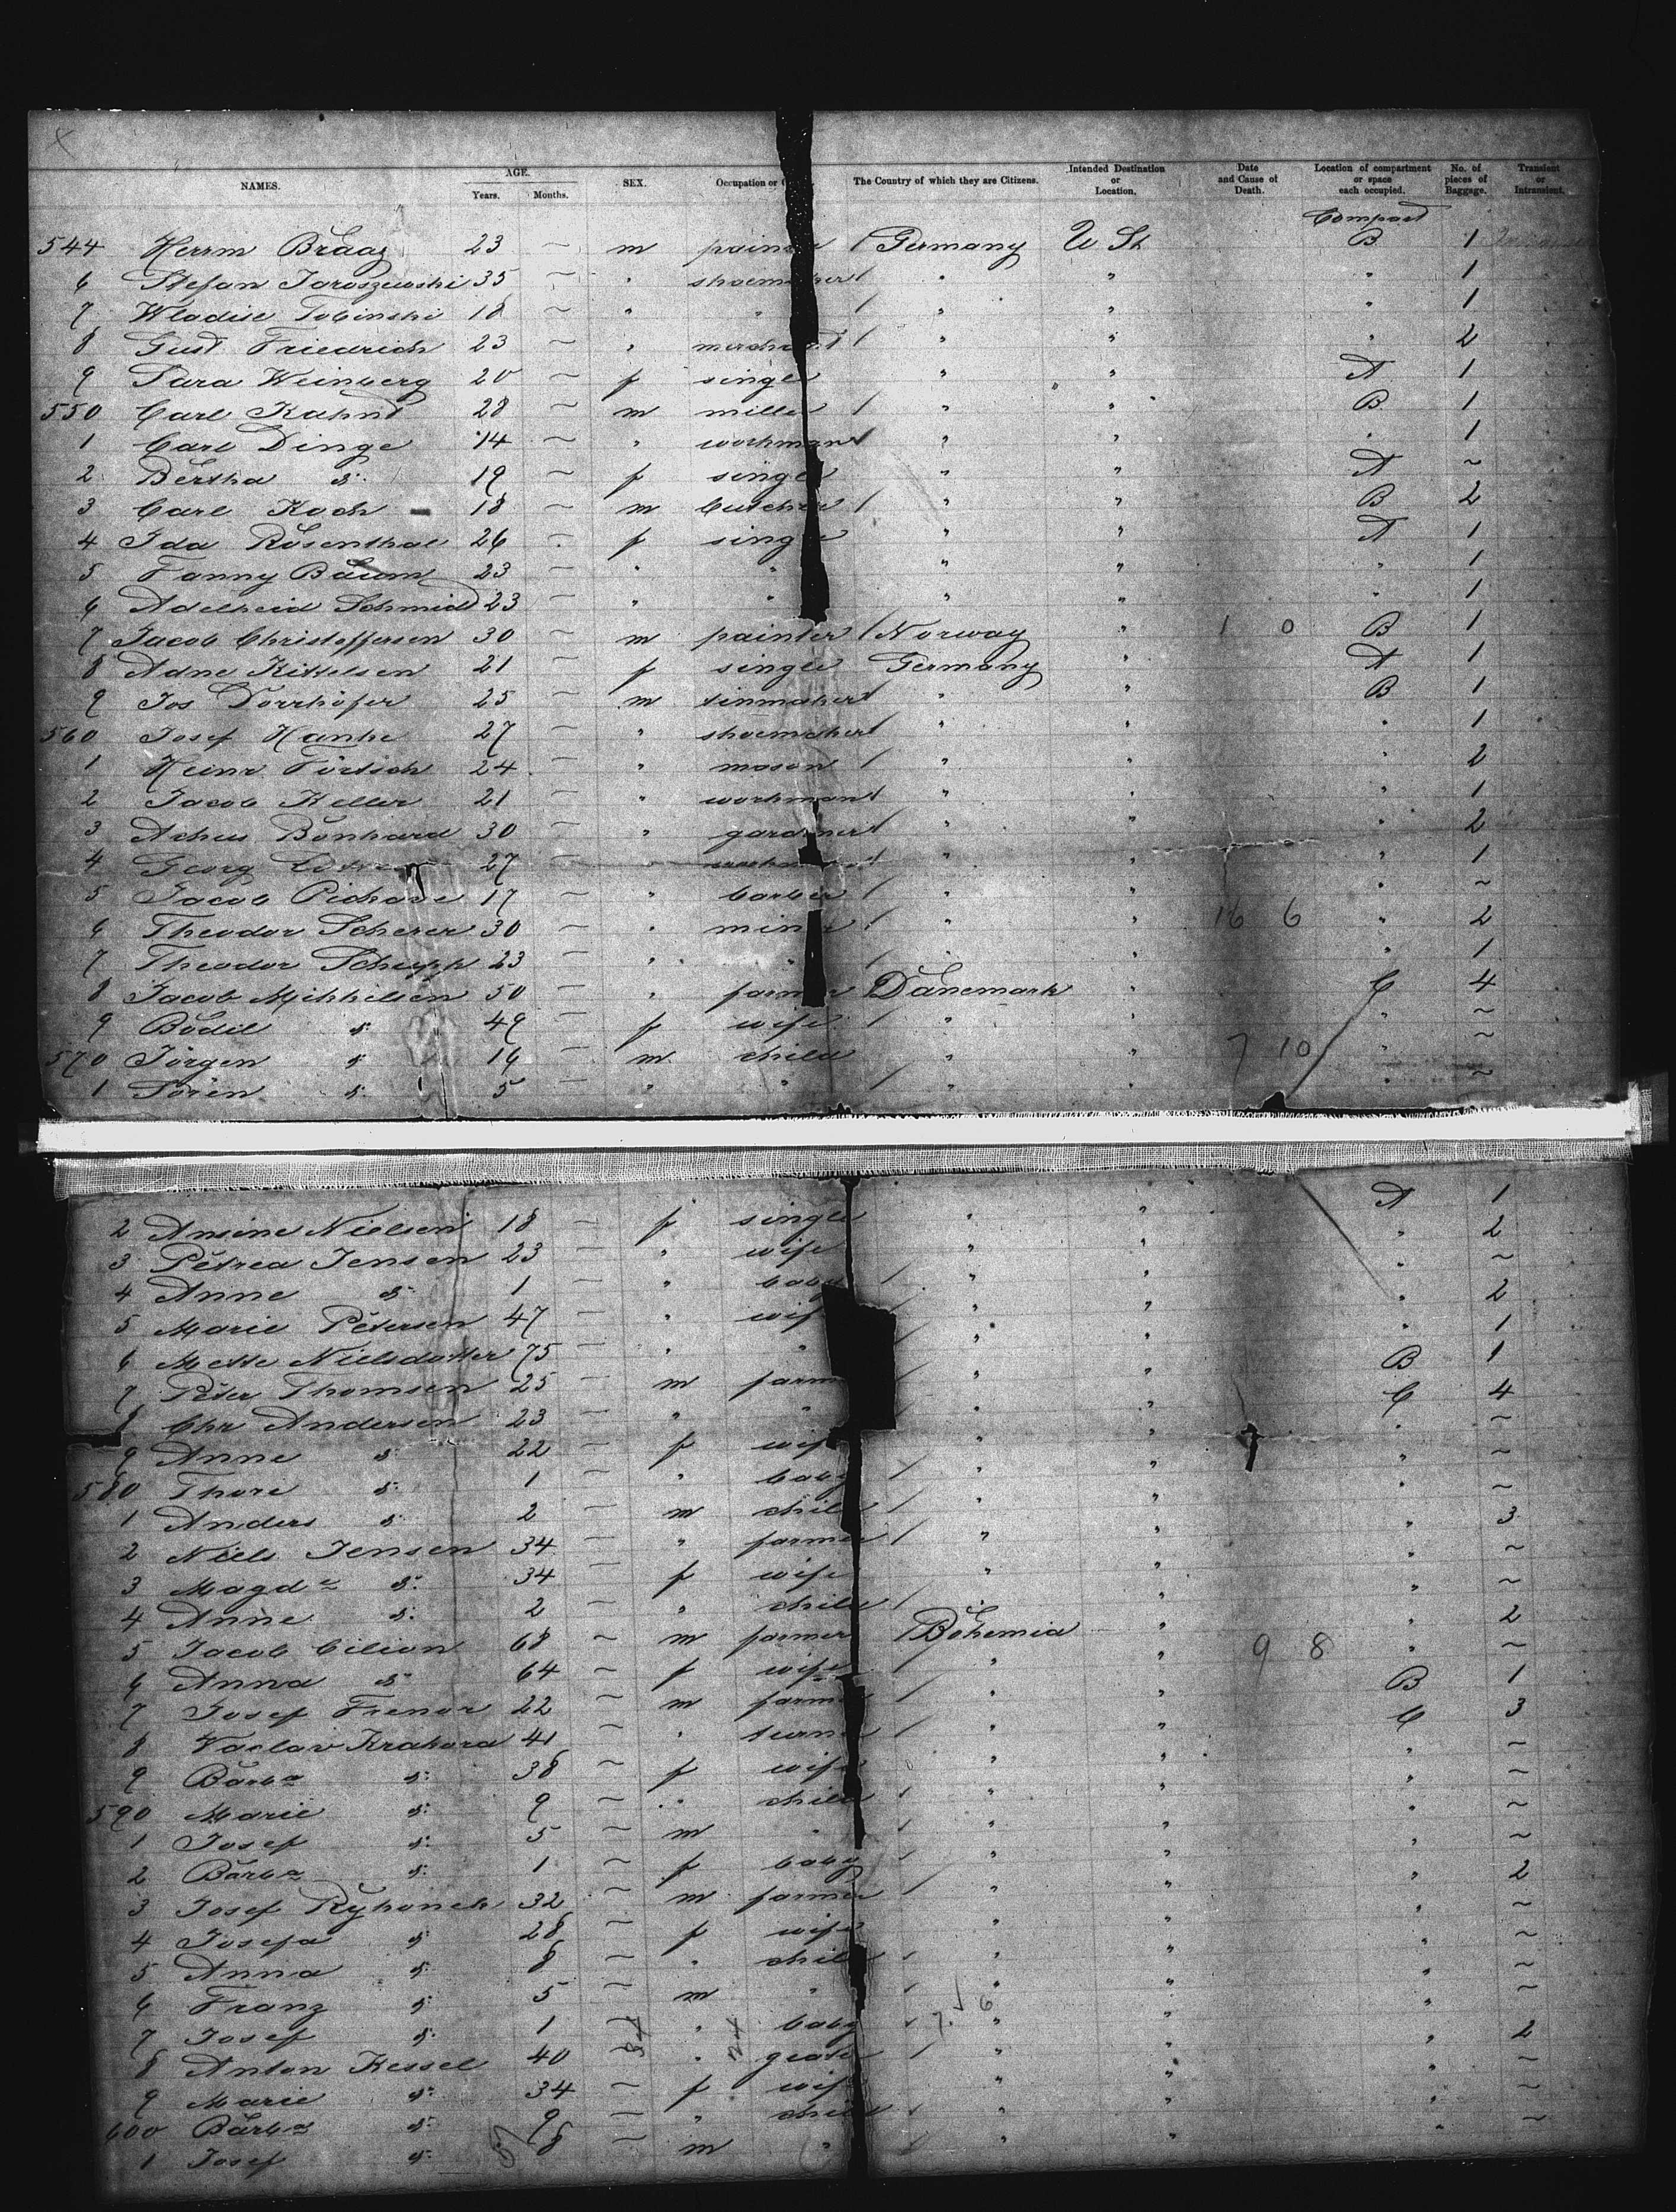 NAMES. AGE. Years. Months. SEX. Occupation or The Country of which they are Citizens. Intended Destination or Location. Date and Cause of Death. Location of compartment or space each occupied. No. of pieces of Baggage. Transient or Intransient.
Compart
544 Herrm Braaz 23 ~ m painter / Germany U St B 1
6 Stefan Jaroszewski 35 ~ " shoemaker / " " " 1
7 Wladisl Tobinski 18 ~ " " / " " " 1
8 Gust Friedrich 23 ~ " merchant / " " " 2
9 Sara Weinberg 20 ~ f single " " A 1
550 Carl Kuhnt 28 ~ m miller / " " B 1
1 Carl Dinge 14 ~ " workman / " " " 1
2 Bertha d: 19 ~ f single " " A ~
3 Carl Koch 18 ~ m butcher / " " B 2
4 Ida Rosenthal 26 ~ f single " " A 1
5 Fanny Baum 23 ~ " " " " " 1
6 Adelheid Schmid 23 ~ " " " " " 1
7 Jacob Christoffersen 30 ~ m painter / Norway " 1 0 B 1
8 Adne Kittelsen 21 ~ f single Germany " A 1
9 Jos Dorrhöfer 25 ~ m tinmaker / " " B 1
560 Josef Hanke 27 ~ " shoemaker / " " " 1
1 Heinr Förtsch 24 ~ " mason / " " " 2
2 Jacob Keller 21 ~ " workman / " " " 1
3 Achus Bonhard 30 ~ " gardener / " " " 2
4 Georg 27 ~ " / " " " 1
5 Jacob 17 ~ " barber / " " " ~
6 Theodor Scherer 30 ~ " miner / " " 16 6 " 2
7 Theodor Schupp 23 ~ " " / " " " 1
8 Jacob Mikkilsen 50 ~ " farmer / Danemark " C 4
9 Bodil d: 49 ~ f wife / " " " ~
570 Jörgen d: 14 ~ m child " " 7 10 " ~
1 Sören d: 5 ~ " " / " " " ~
2 Ansine Nielsen 18 ~ f single " " A 1
3 Petrea Jensen 23 ~ " wife " " " 2
4 Anne d: 1 ~ " baby / " " " ~
5 Marie Petersen 47 ~ " wife / " " " 2
6 Mette Nielsdatter 75 ~ " " / " " " 1
7 Peter Thomsen 25 ~ m farmer / " " B 1
8 Chr Andersen 23 ~ " " / " " C 4
9 Anne d: 22 ~ f wife " " " ~
580 Thore d: 1 ~ " baby / " " " ~
1 Anders d: 2 ~ m child / " " " ~
2 Niels Jensen 34 ~ " farmer / " " " 3
3 Magda d: 34 ~ f wife " " " ~
4 Anne d: 2 ~ " child / " " " ~
5 Jacob Cilian 68 ~ m farmer / Bohemia " " 2
6 Anna d: 64 ~ f wife / " " 9 8 " ~
7 Josef Frenor 22 ~ m farmer / " " B 1
8 Vaclav Krahora 41 ~ " turner / " " C 3
9 Barba d: 38 ~ f wife " " " ~
590 Marie d: 9 ~ " child / " " " ~
1 Josef d: 5 ~ m " / " " " ~
2 Barba d: 1 ~ f baby / " " " ~
3 Josef Ryhonek 32 ~ m farmer / " " " 2
4 Josefa d: 28 ~ f wife " " " ~
5 Anna d: 8 ~ " child / " " " ~
6 Franz d: 5 ~ m " / " " " ~
7 Josef d: 1 ~ " baby / " " " ~
8 Anton Kessel 40 ~ " / " " " 2
9 Marie d: 34 ~ f wife " " " ~
600 Barba d: 9 ~ " child / " " " ~
1 Josef d: 8 ~ m " / " " " ~